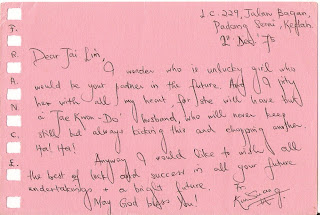 J.C. 229, Jalan Bagan,
Padang Serai, Kedah
1st Dec '75
Dear Jai Lim,
I wonder who is unlucky girl who
would be your partner in the future. And I pity
her with all my heart, for she will have but
a 'Tae Kwon-Do' husband, who will never keep
still but always kicking this and chopping another.
Ha! Ha!
Anyway, I would like to wish all
the best of luck and success in all your future
undertakings + a bright future.
May God bless you!
F.
R.
A.
N.
C.
E.